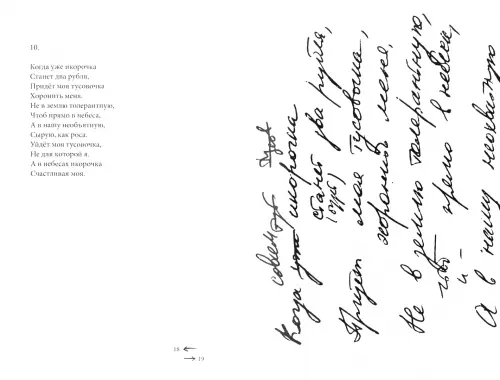 10.
Когда уже икорочка
Станет два рубли,
Придёт моя тусовочка
Хоронить меня.
Не в землю толерантную,
Чтоб прямо в небеса,
А в нашу необъятную,
Сырую, как роса.
Уйдёт моя тусовочка,
Не для которой я.
А в небесах икорочка
Счастливая моя.
18
19
совсем
Когда уже икорочка
станет два рубля,
(будет)
Придет моя тусовочка,
хоронить меня.
Не в землю толерантную,
чтоб прямо в небеса,
и
А в нашу необъятную